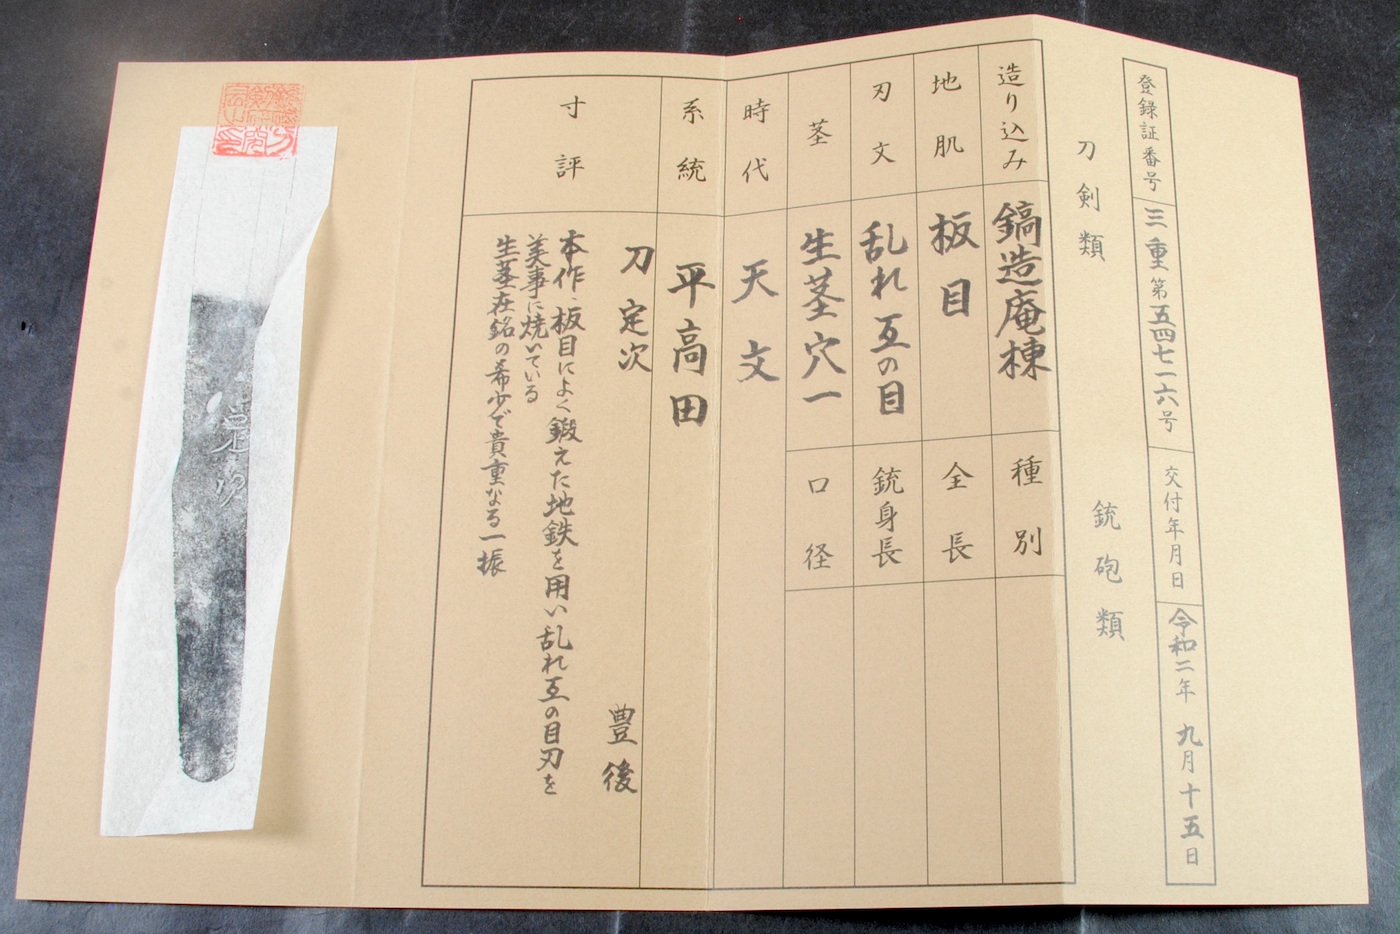 登録証番号 三重第五四七一六号 交付年月日 令和二年九月十五日
刀剣類 銃砲類
造り込み 鎬造庵棟 種別
地肌 板目 全長
刃文 乱れ互の目 銃身長
茎 生茎穴一 口径
時代 天文
系統 平高田
寸評 刀 定次 豊後
本作、板目によく鍛えた地鉄を用い乱れ互の目刃を
美事に焼いている
生茎在銘の希少で貴重なる一振